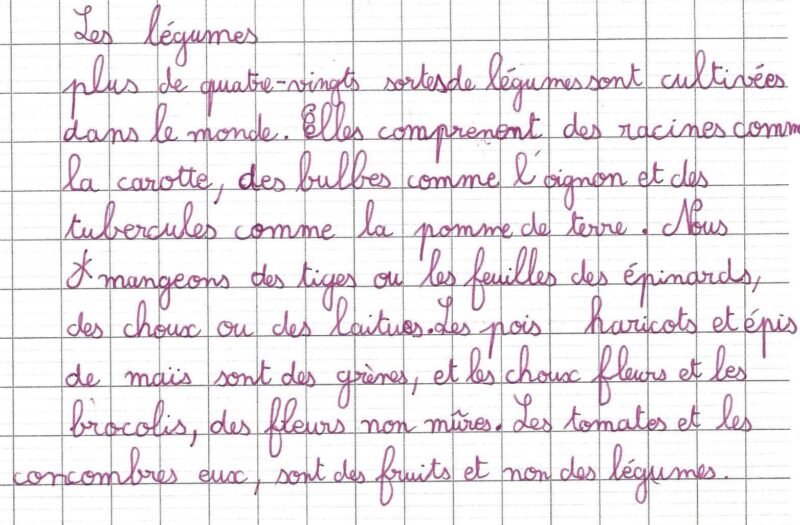 Les légumes
plus de quatre-vingts sortes de légumes sont cultivées
dans le monde. Elles comprenent des racines comm
la carotte, des bulbes comme l'oignon et des
tubercules comme la pomme de terre. Nous
mangeons des tiges ou les feuilles des épinards,
des choux ou des laitues. Les pois haricots et épis
de maïs sont des grènes, et les choux fleurs et les
brocolis, des fleurs non mûres. Les tomates et les
concombres eux, sont des fruits et non des légumes.